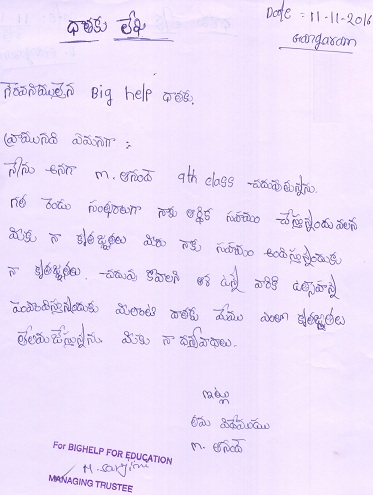 Date : 11-11-2016
Gangaram
దాతకు లేఖ
గౌరవనీయులైన Big help దాతకు,
వ్రాయునది ఏమనగా :
నేను అనగా m. ఆనంద్ 9th class చదువుతున్నాను.
గత రెండు సంవత్సరాలుగా నాకు ఆర్థిక సహాయం చేస్తున్నందు వలన
మీకు నా కృతజ్ఞతలు మీరు నాకు సహాయం అందిస్తున్నందుకు
నా కృతజ్ఞతలు. చదువు కోవాలని ఆశ ఉన్న వారికి ఉత్సాహాన్ని
పెంపొందిస్తున్నందుకు మీలాంటి దాతకు మేము ఎంతో కృతజ్ఞతలు
తెలియజేస్తున్నాను. మీకు నా ధన్యవాదాలు.
ఇట్లు
తమ విధేయుడు
m. ఆనంద్
For BIGHELP FOR EDUCATION
MANAGING TRUSTEE